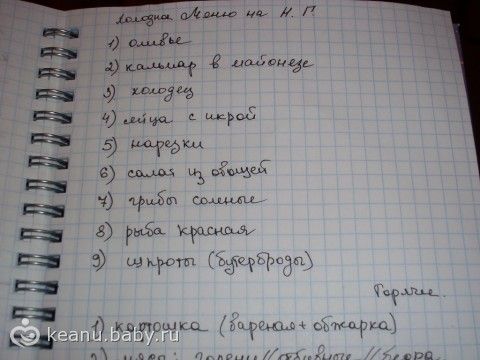 Холодна Меню на Н. П
1) оливье
2) кальмар в майонезе
3) холодец
4) яйца с икрой
5) нарезки
6) салат из овощей
7) грибы соленые
8) рыба красная
9) шпроты (бутерброды)
Горячие.
1) картошка (вареная + обжарка)
2) мясо: голени//отбивные//
keanu.baby.ru